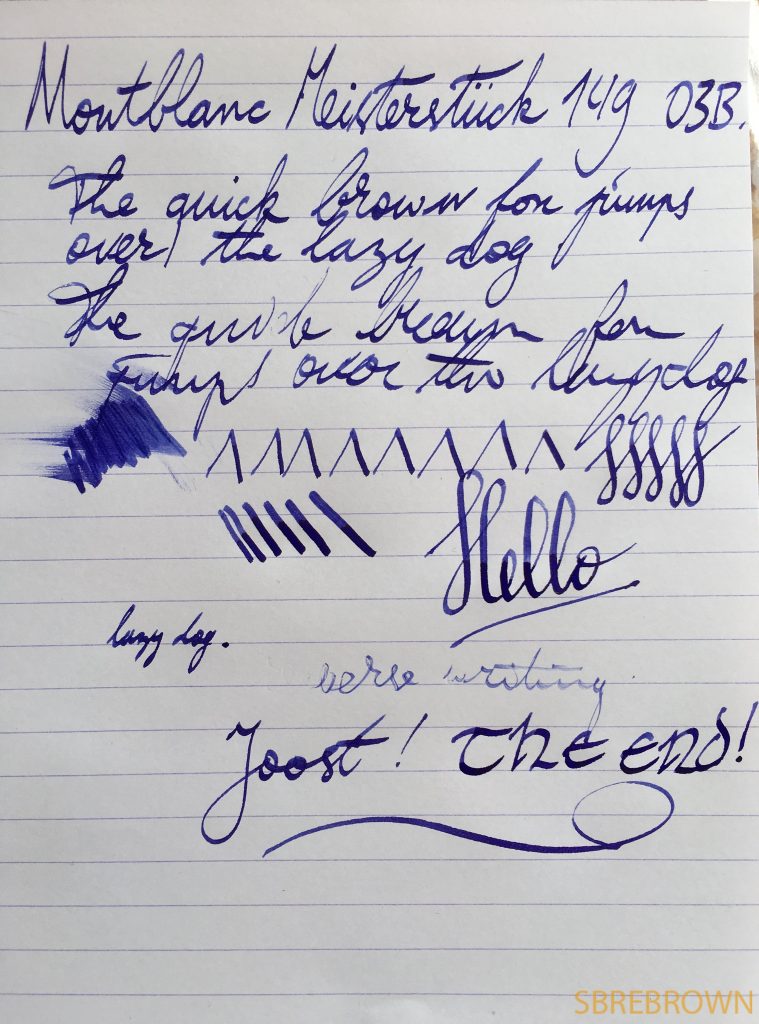 Montblanc Meisterstück 149 O3B.
The quick brown fox jumps
over the lazy dog
The quick brown fox
Jumps over the lazy dog
Hello
lazy dog.
verse writing
Joost! The End!
SBREBROWN